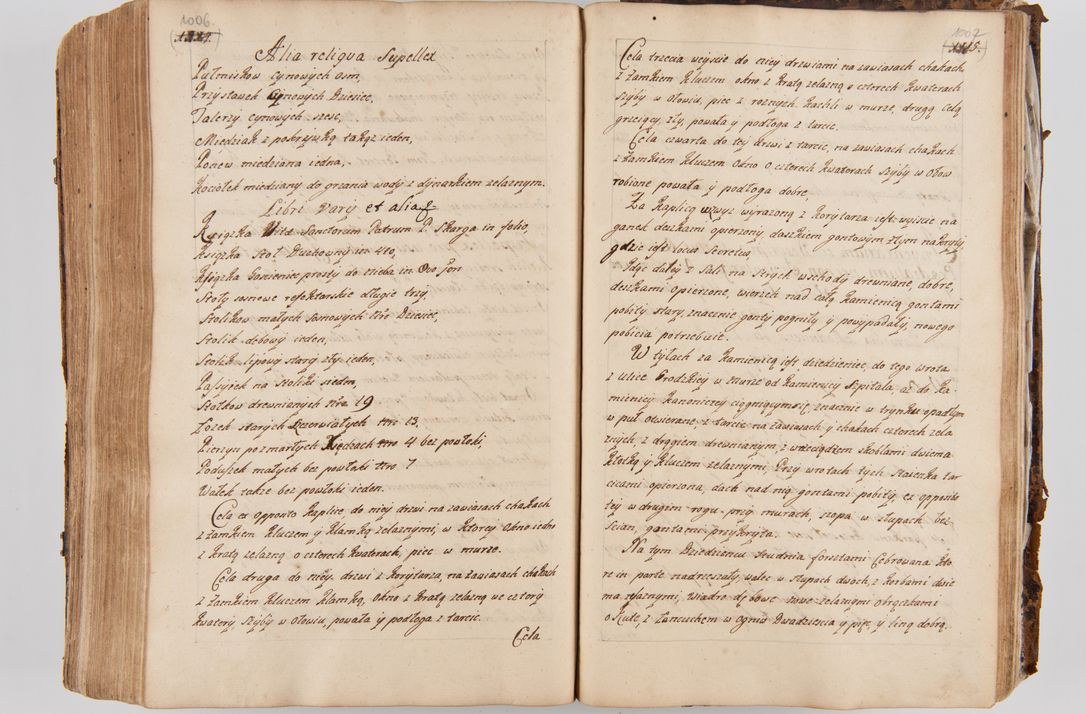 1006.
Alia reliqva Supellex
Pułmiskow cynowych osm,
Przystawek cynowych Dziesięc,
Talerzy cynowych szesc,
Miedziak z pokrywką takąz ieden,
miedziana iedna,
Kociołek miedziany do grzania wody z dynarkiem zelaznym.
Libri varÿ et alia
Ksiązka Vita Sanctorum Patrum P. Skarga in folio,
Ksiązka Stoł Duchowny in 4to,
Ksiązka prosty do nieba in 8vo
Stoły sosnowe refektarskie długie trzy,
Stolikow małych sosnowych Nro Dziesięc,
Stolik dębowy ieden,
Stolik lipowy stary zły ieden,
na Stoliki siedem,
Stołkow drewnianych Nro 19
Łozek starych Nro 13.
Pierzyn po zmarłych Xiędzach Nro 4 bez powłoki,
Poduszek małych bez powłoki Nro 7
Wałek takze bez powłoki ieden.
Cela ex opposito Kaplice do niey drzwi na zawiasach chakach
z zamkiem kluczem y klamką zelaznymi, w ktorey okno iedno
z kratą zelazną o czterech kwaterach, piec w murze.
Cela druga do niey drzwi z korytarza, na zawiasach chakach
z zamkiem kluczem klamką, okno z kratą zelazną we cztery
kwatery szyby w ołowiu, powała y podłoga z tarcic.
Cela
1007
Cela trzecia weyscie do niey drzwiami na zawiasach chakach,
z zamkiem kluczem okno z kratą zelazną o czterech kwaterach
szyby w ołowiu, piec z roznych kachli w murze, drugą Celę
grzeiący, zły, powała y podłoga z tarcic.
Cela czwarta do tey drzwi z tarcic, na zawiasach chakach
z zamkiem kluczem okno o czterech kwaterach szyby w ołow
robione powała y podłoga dobre,
Za Kaplicą wyrazoną z korytarza iest wyiscie na
ganek deskami opierzony daszkiem gontowym złym nakryty
gdzie iest locus Secretus,
Idąc daley z Sali na strych wschody drewniane, dobre,
deskami opierzone, wierzch nad całą Kamienicą gontami
pobity stary, znacznie gonty pogniły y powypadały, nowego
pobicia potrzebuie.
W tyłach za Kamienicą iest dziedziniec, do tego wrota
z ulice Grodzkiey w murze od Kamienicy Szpitala az do Ka-
mienicy Kanoniczey ciągnącym się, znacznie w tynku opadłym
w puł otwierane, z tarcic na zawiasach y chakach czterech zela
znych, z drągiem drewnianym, z wrzeciądzem skoblami dwiema
kłotką y kluczem zelaznymi, Przy wrotach tych Staienka tar
cicami opierzona, dach nad nią gontami pobity, ex opposito
tey w drugim rogu przy murach, szopa w słupach bez
scian, gontami przykryta.
Na tym Dziedzincu studnia forsztami Cębrowana Kto
re in parte nadrzeszały, walec w słupach dwoch, z korbami dwie
ma zelaznymi, wiadro dębowe nowe zelaznymi obrączkami
okute, z łancuchem w ogniw Dwadziescia y pięc, y liną dobrą.